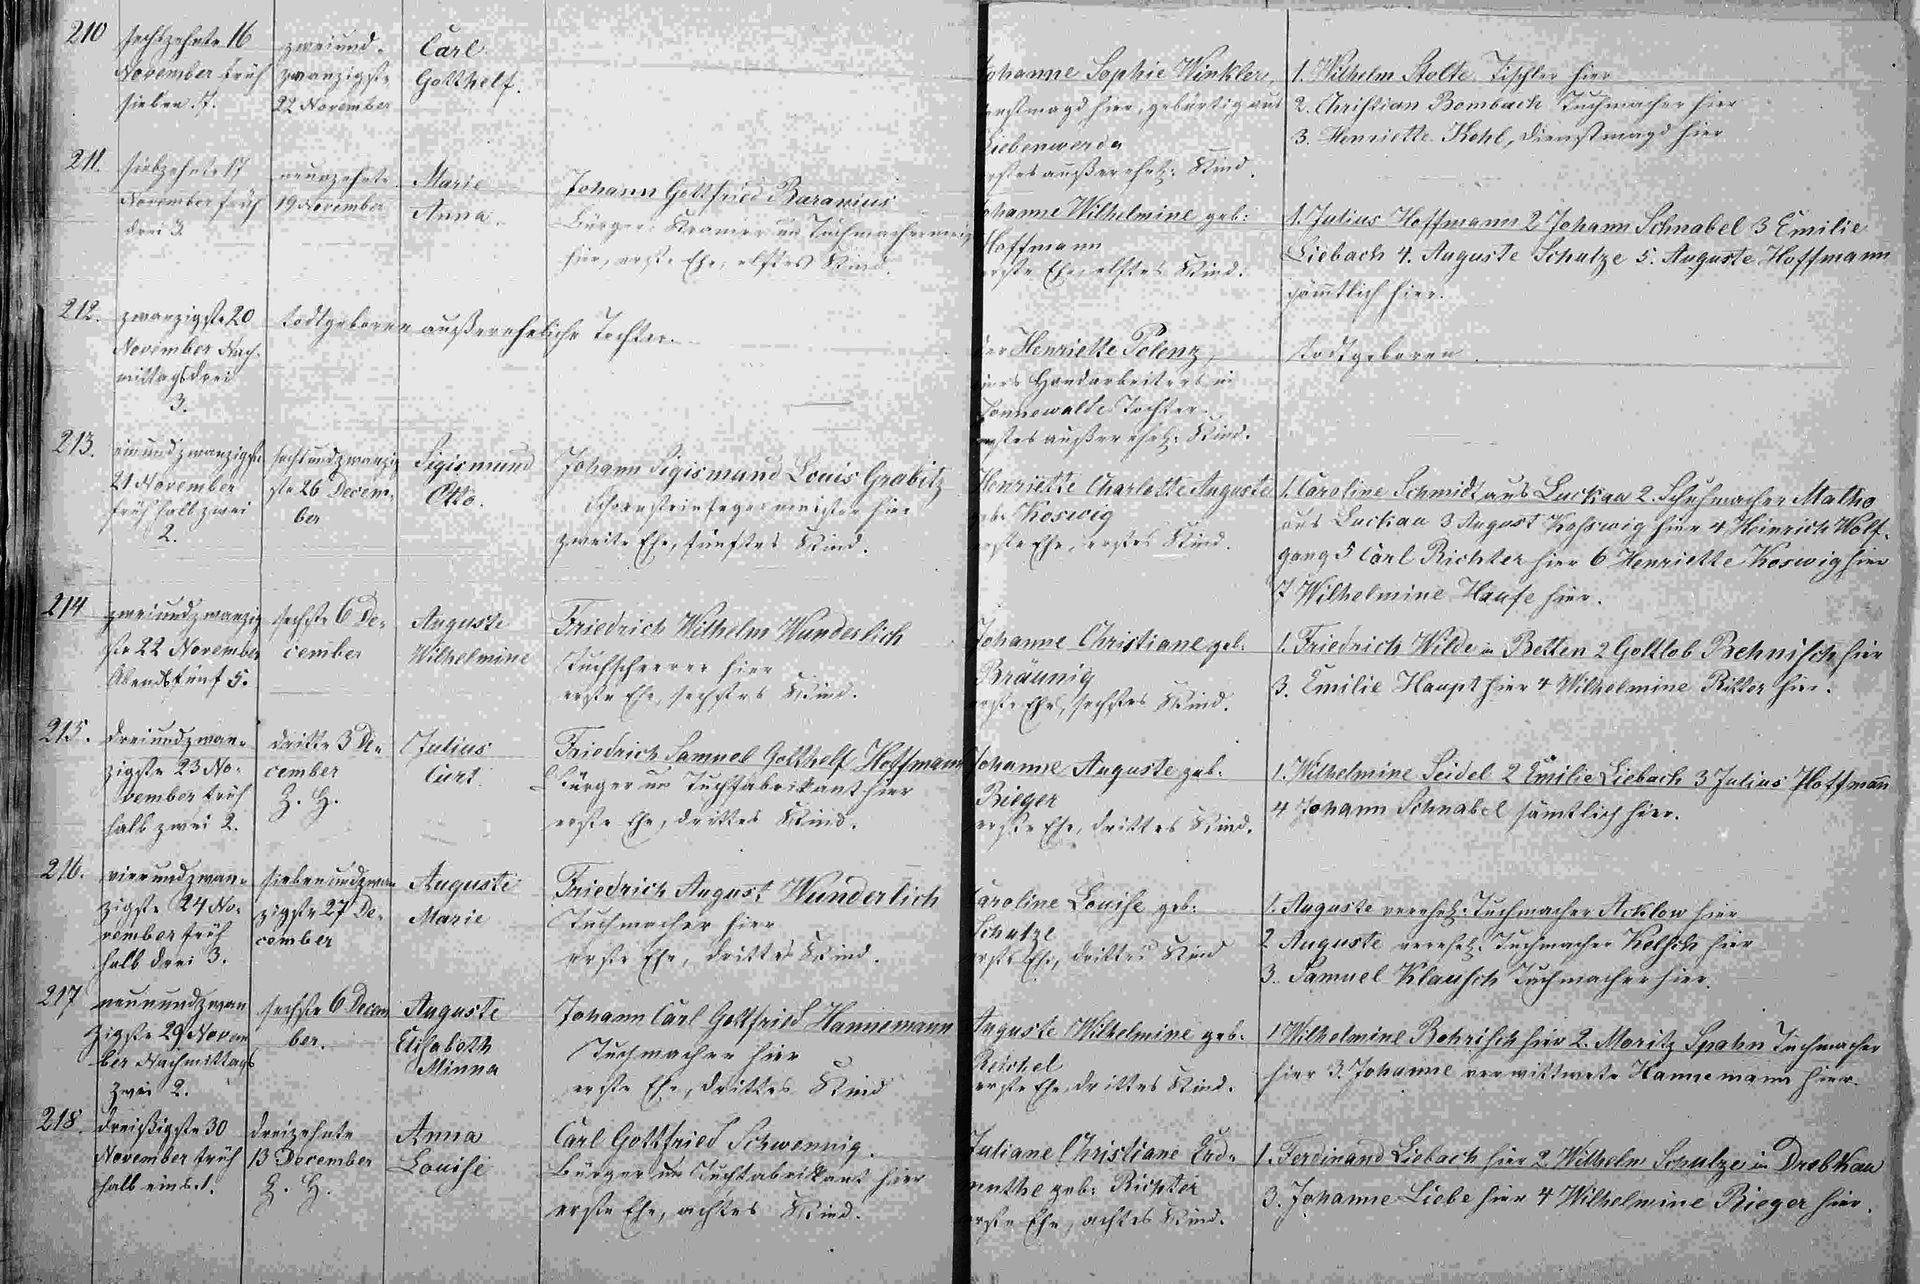 210
sechszehnte 16
November früh
sieben 7.
zweiund-
zwanzigste
22 November
Carl
Gotthelf.
Johanne Sophie Winkler,
Dienstmagd hier, gebürtig aus
Liebenwerda
erstes außerehel: Kind.
1. Wilhelm Stolte Tischler hier
2. Christian Bombach Tuchmacher hier
3. Henriette Kohl, Dienstmagd hier
211.
siebzehnte 17
November früh
drei 3.
neunzehnte
19 November
Marie
Anna.
Johann Gottfried Baranius
Bürger: Kramer un Tuchmachermeis
hier, erste Ehe, elftes Kind.
Johanne Wilhelmine geb:
Hoffmann
erste Ehe, elftes Kind.
1. Julius Hoffmann 2 Johann Schnabel 3 Emilie
Liebach 4. Auguste Schulze 5. Auguste Hoffmann
sämtlich hier.
212.
zwanzigste 20
November Nach-
mittags drei
3.
todtgeborene außereheliche Tochter.
der Henriette Polenz,
eines Handarbeiters in
Sonnewalde Tochter.
erstes außerehel: Kind.
todtgeboren.
213.
einundzwanzigste
21 November
früh halb zwei
2.
sechsundzwanzig
ste 26 Decem-
ber
Sigismund
Otto.
Johann Sigismund Louis Grabitz
Schornsteinfegermeister hier
zweite Ehe, fünftes Kind.
Henriette Charlotte Auguste
geb: Koswig
erste Ehe, erstes Kind.
1. Caroline Schmidt aus Luckau 2. Schuhmacher Matho
aus Luckau 3 August Koswig hier 4 Heinrich Wolf-
gang 5 Carl Richter hier 6 Henriette Koswig hier
7 Wilhelmine Haufe hier.
214
zweiundzwanzig
ste 22 November
Abends fünf 5.
sechste 6 De-
cember
Auguste
Wilhelmine
Friedrich Wilhelm Wunderlich
Tuchscheerer hier
erste Ehe, sechstes Kind.
Johanne Christiane geb.
Bräunig
erste Ehe, sechstes Kind.
1. Friedrich Wilde in Betten 2 Gottlob Behnisch hier
3. Emilie Haupt hier 4 Wilhelmine Ritter hier.
215.
dreiundzwan-
zigste 23 No-
vember früh
halb zwei 2.
dritte 3 De-
cember
Z. H.
Julius
Curt.
Friedrich Samuel Gotthelf Hoffmann
Bürger un Tuchfabrikant hier
erste Ehe, drittes Kind.
Johanne Auguste geb.
Rieger
erste Ehe, drittes Kind.
1. Wilhelmine Seidel 2 Emilie Liebach 3 Julius Hoffmann
4 Johann Schnabel sämtlich hier.
216.
vierundzwan-
zigste 24 No-
vember früh
halb drei 3.
siebenundzwan
zigste 27 De-
cember
Auguste
Marie
Friedrich August Wunderlich
Tuchmacher hier
erste Ehe, drittes Kind.
Caroline Louise geb:
Schulze
erste Ehe, drittes Kind
1. Auguste verehel. Tuchmacher Acklow hier
2 Auguste verehel. Tuchmacher Kelsch hier
3. Samuel Klausch Tuchmacher hier.
217
neunundzwan
zigste 29 Novem
ber Nachmittags
zwei 2.
sechste 6 Decem
ber.
Auguste
Elisabeth
Minna
Johann Carl Gottfried Hannemann
Tuchmacher hier
erste Ehe, drittes Kind
Auguste Wilhelmine geb.
Reichel
erste Ehe, drittes Kind.
1 Wilhelmine Bohrisch hier 2. Moritz Spahn Tuchmacher
hier 3. Johanne verwittwete Hannemann hier.
218.
dreißigste 30
November früh
halb eins 1.
dreizehnte
13 December
Z. H.
Anna
Louise
Carl Gottfried Schwennig.
Bürger un Tuchfabrikant hier
erste Ehe, achtes Kind.
Juliane Christiane Erd-
muthe geb: Richter
erste Ehe, achtes Kind.
1. Ferdinand Liebach hier 2 Wilhelm Schulze in Drebkau
3. Johanne Liebe hier 4 Wilhelmine Rieger hier.